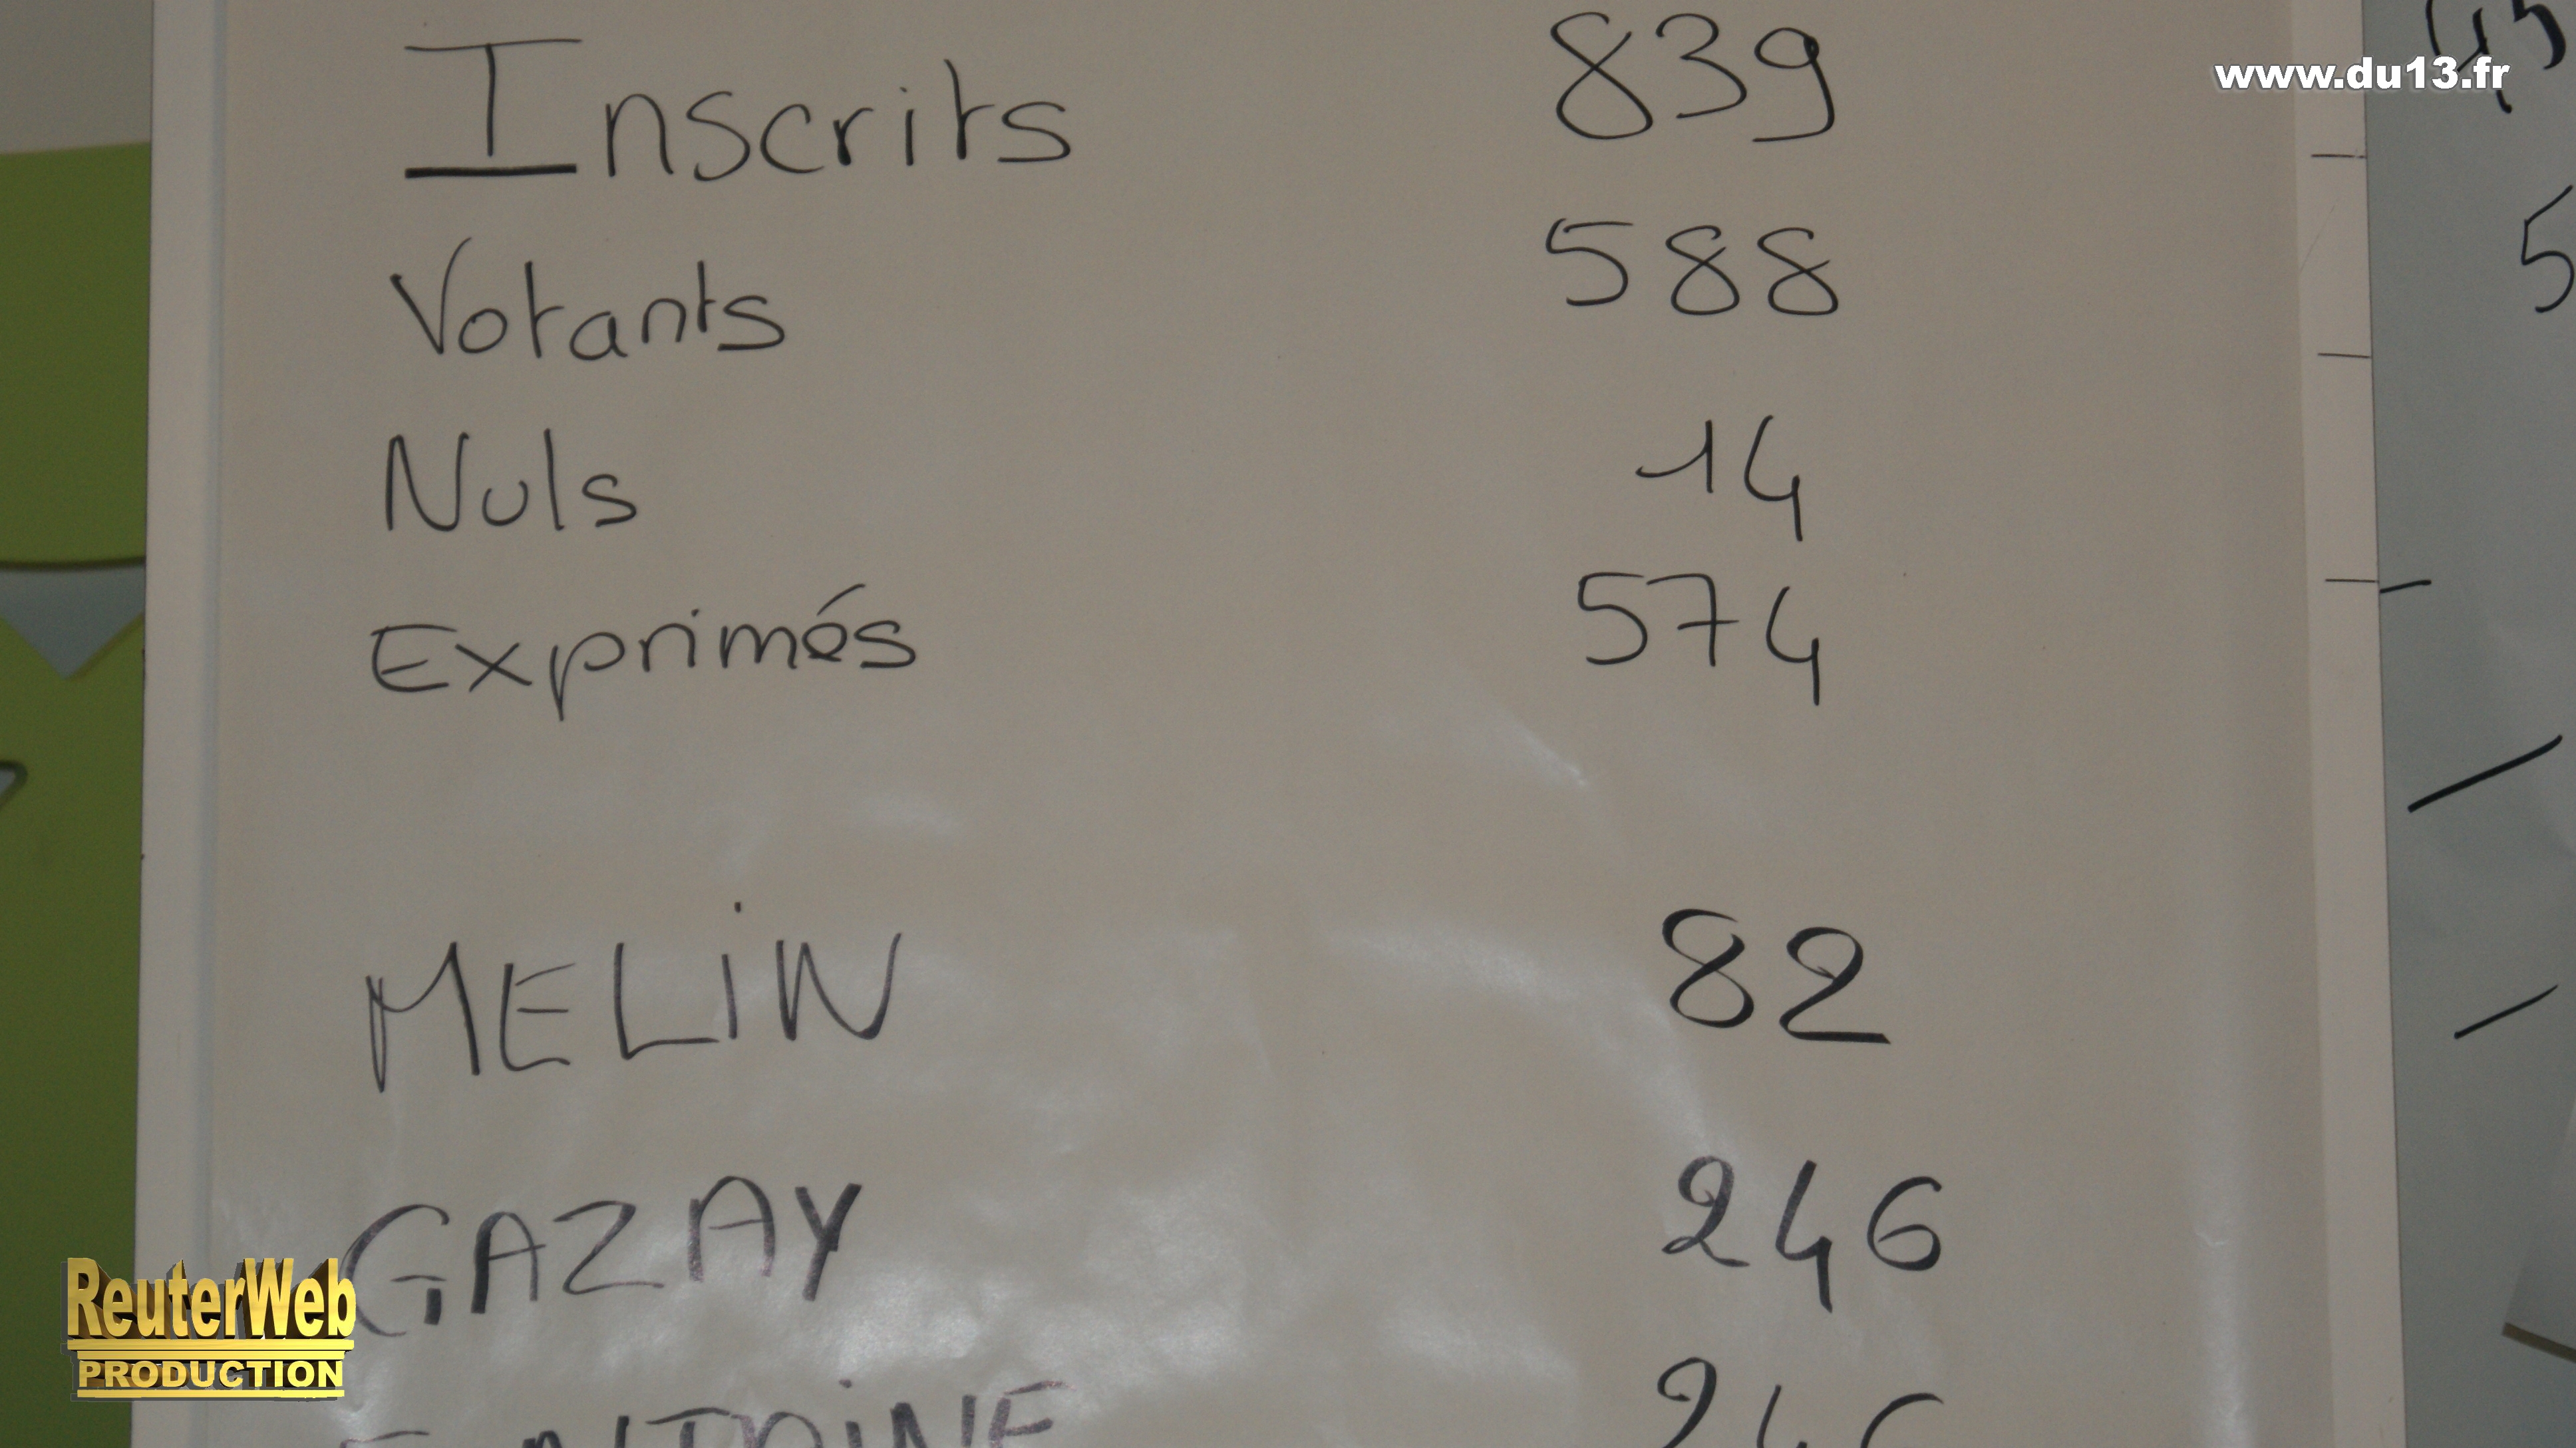 Inscrits 839
www.du13.fr
Votants 588
Nuls 14
Exprimés 574
MELiN 82
GAZAY 246
ReuterWeb
PRODUCTION